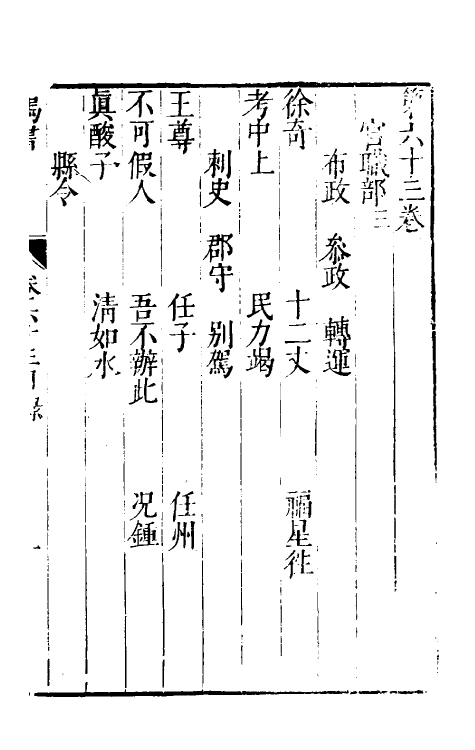 第六十三卷
官職部三
布政 叅政 轉運
徐奇 十二丈 福星徃
考中上 民力竭
刺史 郡守 別駕
王尊 任子 任州
不可假人 吾不辦此 况鍾
眞酸子 清如水
縣令
卷六十三目錄 一